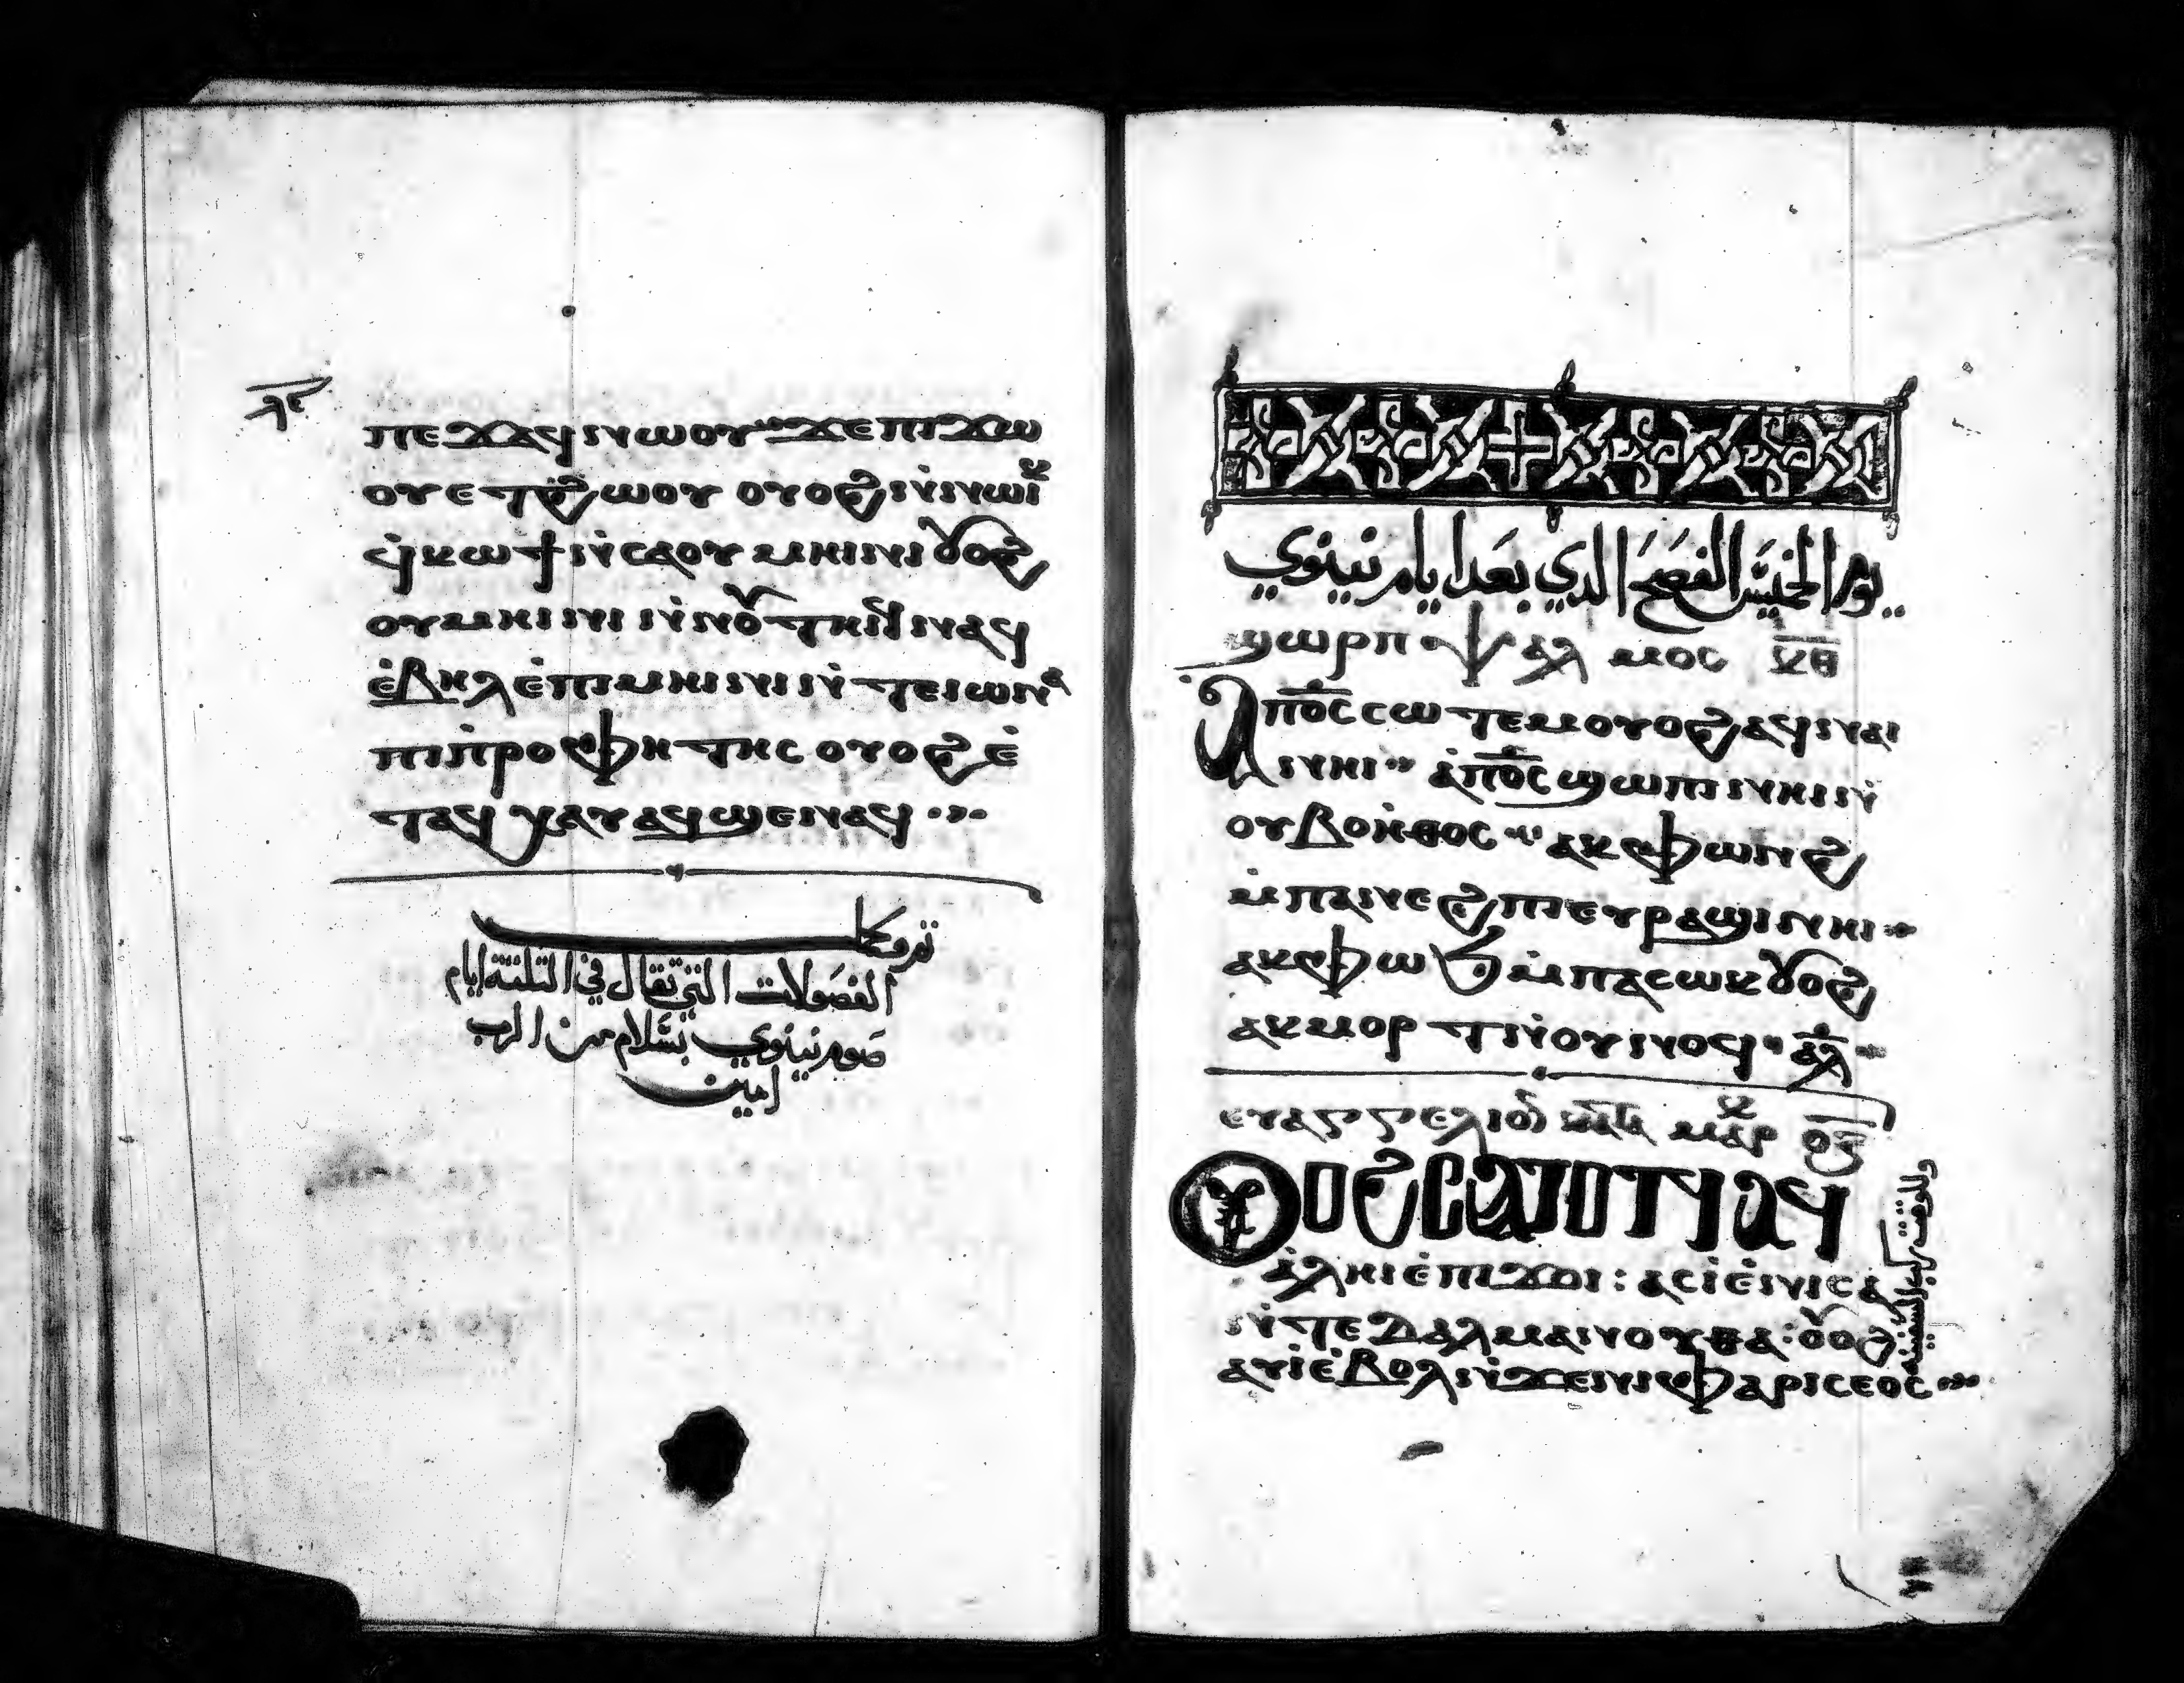 ⲡⲉϫⲁϥ ⲛⲱⲟⲩ ϫⲉ ⲡⲓϫⲱ
ⲟⲩ ⲉⲧϩⲱⲟⲩ ⲟⲩⲟϩ ⲛ̇ⲛⲱⲓⲕ
ϥ̇ⲕⲱϯ ⲛ̇ⲥⲁ ⲟⲩⲙⲏⲓⲛⲓ ⲟⲩⲟϩ
ⲟⲩⲙⲏⲓⲛⲓ ⲛ̇ⲛⲟⲩⲧⲏⲓϥ ⲛⲁϥ
ⲉ̇ⲃⲏⲗ ⲉ̇ⲡⲓⲙⲏⲓⲛⲓ ⲛ̇ⲧⲉ ⲓⲱⲛⲁ
ⲡⲓⲡ̇ⲣⲟⲫⲏⲧⲏⲥ ⲟⲩⲟϩ ⲉ̇
ⲧⲁϥ ⲭⲁⲩ ⲁϥϣⲉⲛⲁϥ
تمو وكمل
الفصولات التي تقال في التلتة ايام
صوم نينوي بسلام من الرب
امين
يوم الخميس الفصح الذي بعد ايام نينوي
ϣⲱⲣⲡ ⲯⲁⲗⲙⲟⲥ ⲕⲑ
Ⲁⲡⲟ̅ⲥ̅ ⲥⲱⲧⲉⲙ ⲟⲩⲟϩ ⲁϥⲛⲁⲓ
ⲛⲏⲓ ⲁ̇ⲡⲟ̅ⲥ̅ ϣⲱⲡⲓ ⲛⲏⲓ ⲛ̇
ⲟⲩⲃⲟⲏ̇ⲑⲟⲥ ⲁⲕⲫⲱⲛϩ
ⲙ̇ⲡⲁⲛⲉϩⲡⲓ ⲉⲩⲣⲁϣⲓ ⲛⲏⲓ
ⲁⲕⲫⲱϧ ⲙ̇ⲡⲁⲥⲱⲕ ⲟⲩⲟϩ
ⲁⲕⲙⲟⲣⲧ ⲛ̇ⲟⲩⲛⲟϥ ⲁ̅ⲗ̅
ⲉⲩⲁⲅⲅⲉⲗⲓⲟⲛ ⲙⲁⲣⲕ
Ⲟⲩⲟϩ ⲥⲁⲧⲟⲧϥ ⲁϥ
ⲁ̇ⲗⲏⲓ ⲉ̇ⲡⲓϫⲟⲓ : ⲁϥⲓ̇ ⲉ̇ⲛⲓⲥⲁ
ⲛ̇ⲧⲉ ⲇⲁⲗⲙⲁⲛⲟⲩⲑⲁ : ⲟⲩⲟϩ
ⲁⲩⲓ̇ ⲉ̇ⲃⲟⲗ ⲛ̇ϫⲉ ⲛⲓⲫⲁⲣⲓⲥⲉⲟⲥ
وللوقت ركب السفينة